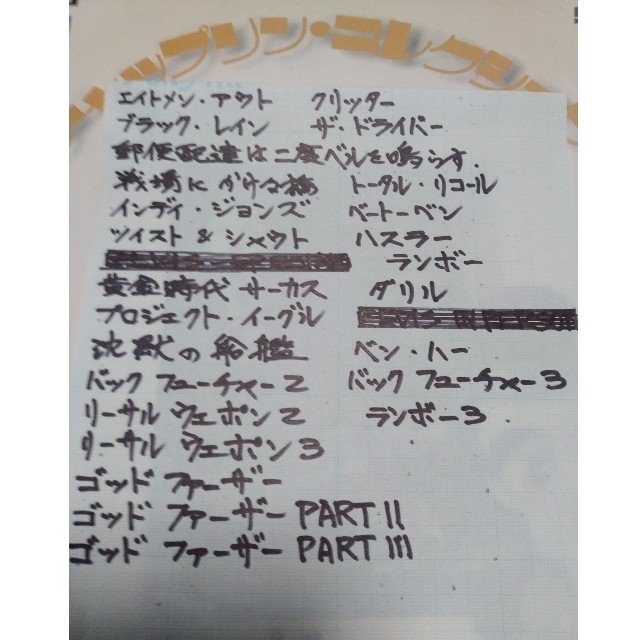 ップリン・コレクション
エイトメン・アウト クリッター
ブラック・レイン ザ・ドライバー
郵便配達は二度ベルを鳴らす.
戦場にかける橋 トータル・リコール
インディ・ジョンズ ベートーベン
ツイスト & シャウト ハスラー
ランボー
黄金時代 サーカス ダリル
プロジェクト・イーグル
沈獣の船艦 ベン・ハー
バック フューチャー2 バック フューチャー3
リーサル ウェポン2 ランボー3
リーサル ウェポン3
ゴッド ファーザー
ゴッド ファーザー PART II
ゴッド ファーザー PART III